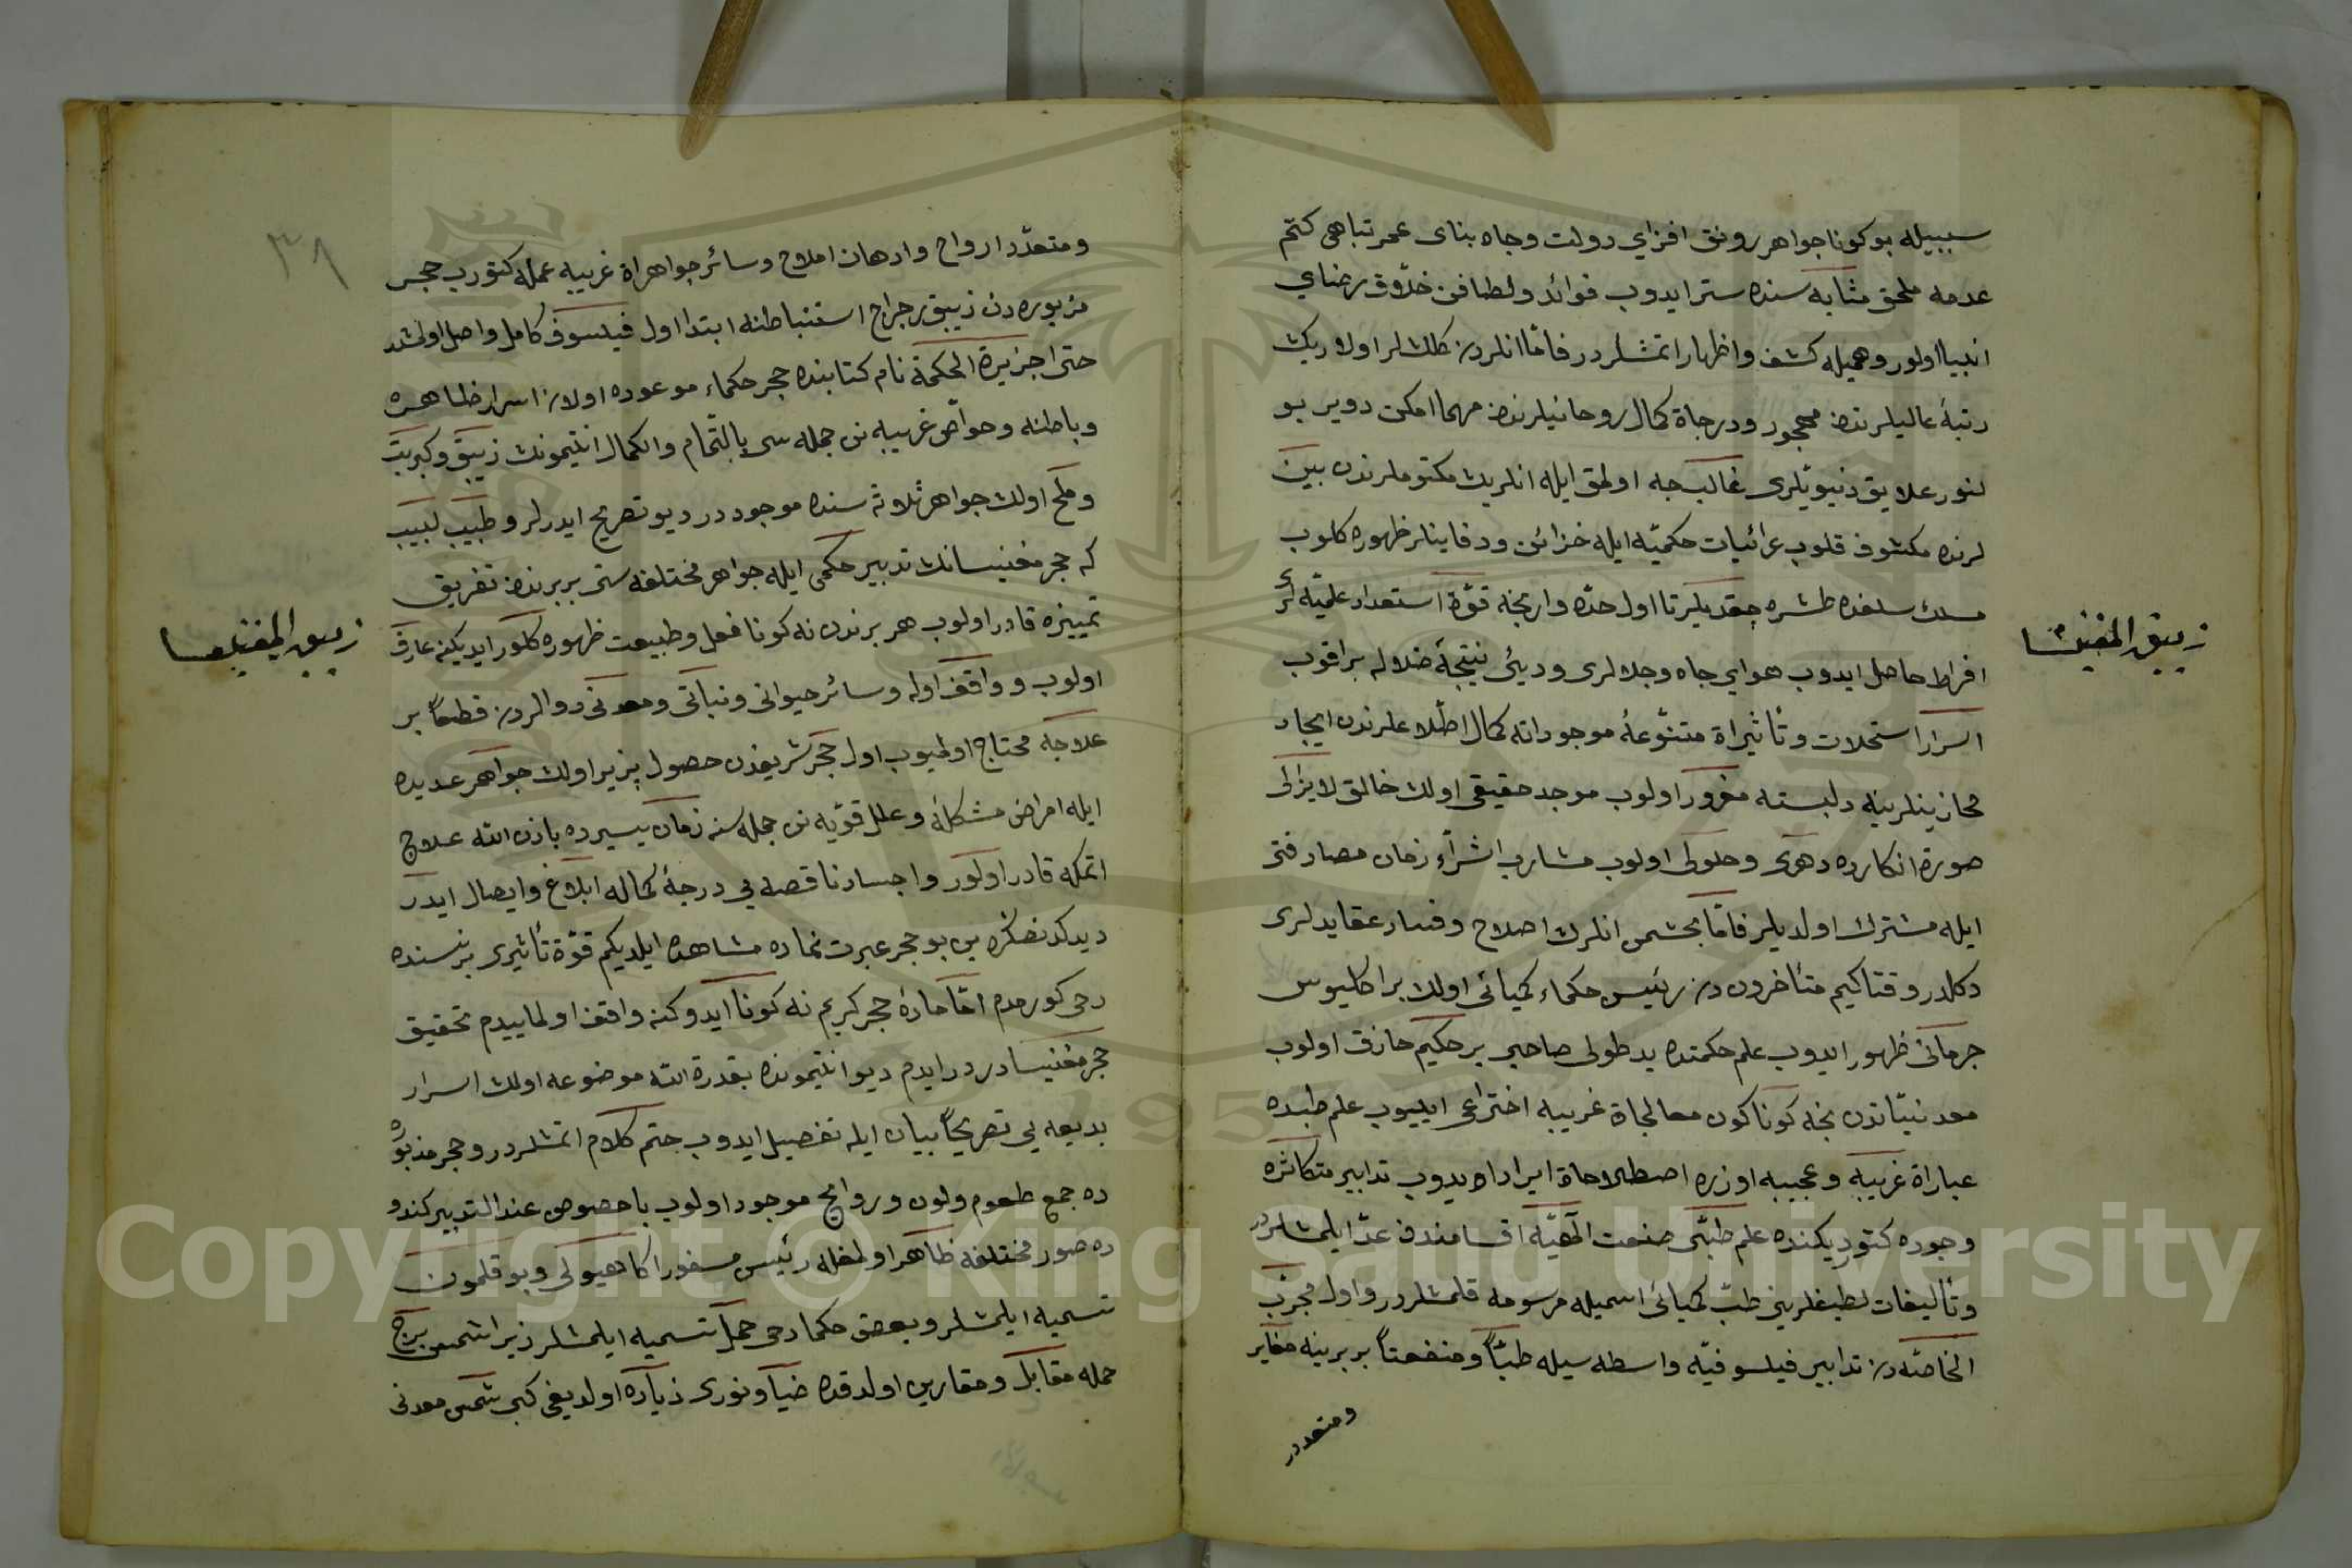 سببيله بو كونا جواهر رونق افزاي دولت وجاه بناى عمر تباهى كتم
عدمه ملحق مثابه سنده ستر ايدوب فوائد ولطافن خلاّق رضاي
انبيا اولور وهميله كشف واظهار اتمشلردر فامّا انلردن كلشلر اولاريك
رتبهٔ عاليلرندن مهجور ودرجاة كمال روحانيلرندن مهما امكن دوير بو
لنور علايق دنيويّلرى غالبجه اولمق ايله انلريك مكتوملرندن بين
لرنده مكشوف قلوب عرائبات حكميّه ايله خزائن ودفاينلر ظهوره كلوب
مسلك سلفده طشره چقديلر تا اول حدّه وارنجه قوّة استعداد علميّه لرى
افراط حاصل ايدوب هواي جاه وجلالرى ودينى نتيجهٔ ضلاله براقوب
اسرار استحلات وتأثيراة متنوّعهٔ موجوداته كمال اطّلاعلرندن ايجاد
مجازينلرينه دلبسته مغرور اولوب موجد حقيقى اولك خالق لايزالى
صورة انكارده دهرى وحلولى اولوب مشارب اشرّاء زمان مصادفتى
ايله مشترك اولديلر فامّا بحثمى انلرك اصلاح وفساد عقايدلرى
دكلدر وقتاكيم متأخرون دن رئيس حكماء كميائى اولك براكليوس
جرمانى ظهور ايدوب علم حكمتده يد طولى صاحبى بر حكيم حاذق اولوب
معدنيّاتدن نخه كونا كون معالجاة غريبه اختراعى ايليوب علم طبده
عباراة غريبه وعجيبه اوزره اصطلاحاة ايراد ايدوب تدابير متكاثره
وجوده كتورديكنده علم طبّى صنعت الٓهيّه اقسامندن عدّ ايلمشلردر
وتأليفات لطيفلرينى طبّ كميائى اسميله مرسومه قلمشلردر واول مجرّب
الخاصّه دن تدابير فيلسوفيّه واسطه سيله طبّاً ومنفعتاً بربرينه مغاير
ومتعدد
زيبق المغنيسا
٣٨
ومتعدّد ارواح وادهان املاح وسائر جواهراة غريبه عمله كتورب حجر
مزبوره دن زيبق رجراج استنباطنه ابتدا اول فيلسوف كامل واصل اولمشدر
حتى اجزيرة الحكمة نام كتابنده حجر حكماء موعوده اولان اسرار ظاهره
وباطنه وخواّص غريبه نى جمله سى بالتمام والكمال انتيمونك زيبق وكبريت
وملح اولك جواهر ثلاثه سنده موجوددر ديو تصريح ايدرلر وطبيب لبيب
كه حجر مغنيسانك تدبير حكمى ايله جواهر مختلفه سنى بربرندن تفريق
تمييزه قادر اولوب هر برندن نه كونا فعل وطبيعت ظهوره كلور ايديكنه عارف
اولوب وواقف اوله وسائر حيوانى ونباتى ومعدنى دوالردن قطعاً بر
علاجه محتاج اولميوب اول حجر شريفدن حصول پزير اولك جواهر عديده
ايله امراض مشكلهٔ وعلل قوّيه نى جمله سنه زمان يسيرده باذن الله علاج
اتمكه قادر اولور واجساد ناقصه يى درجهٔ كماله ابلاغ وايصال ايدر
ديدكدنصكره بن بو حجر عبرت نماده مشاهده ايلديكم قوّة تأثيرى برنسنده
دخى كورمدم امّا مادهٔ حجر كريم نه كونا ايدوكنه واقف اولماييدم تحقيق
حجر مغنيسادردر ايدم ديو انتيمونده بقدرة الله موضوعه اولك اسرار
بديعه يى تصريحاً بيان ايله تفصيل ايدوب ختم كلام اتمشلردر وحجر مذبوره
ده جمع طعوم ولون وروايح موجود اولوب باخصوص عند التدبير كندو
ده صور مختلفه ظاهر اولمغله رئيس مسفور اكا هيولى وبو قلمون
تسميه ايلمشلر وبعض حكما دخى حمل تسميه ايلمشلر زيرا شمس برج
حمله مقابل ومقارين اولدقده ضيا ونورى زياده اولديغى كبى شمس معدنى
زيبق المغنيسا